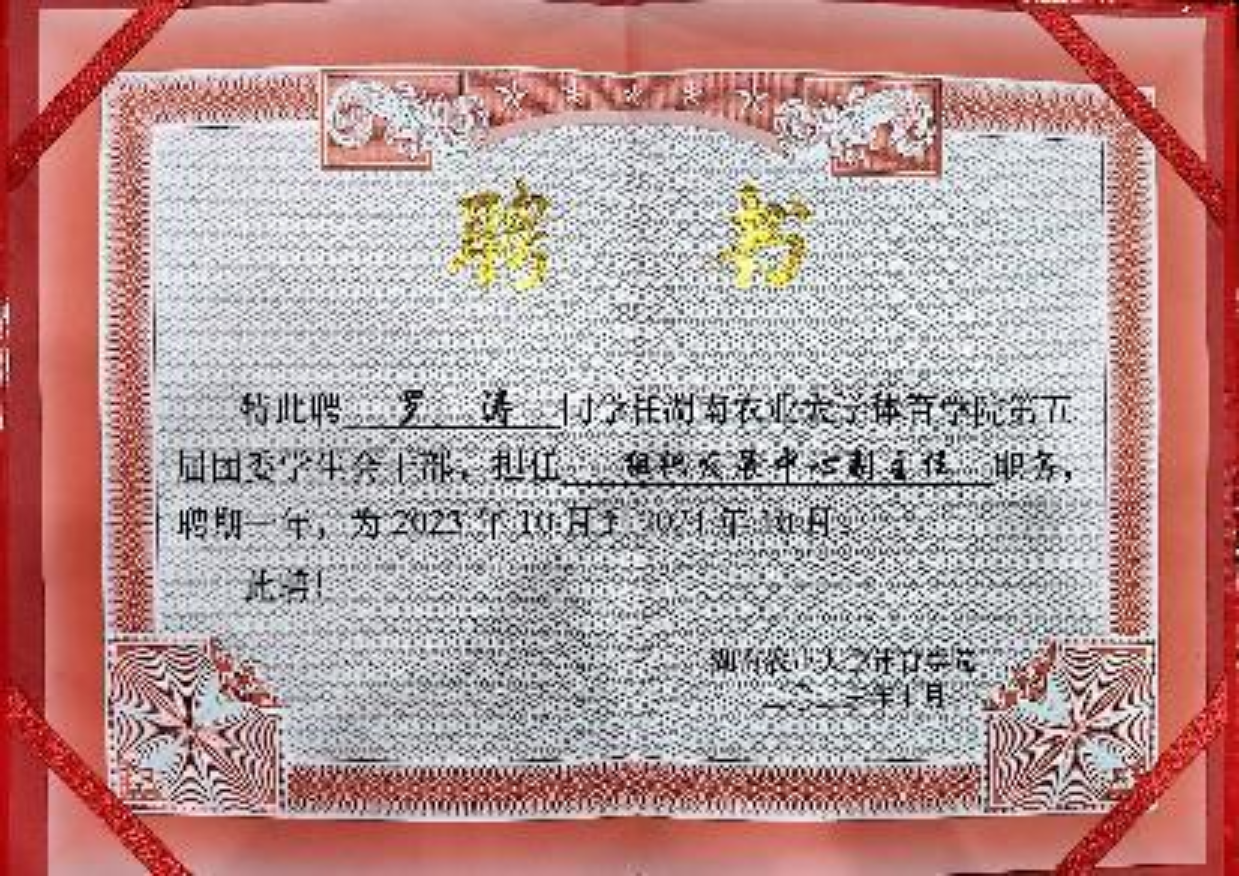 聘 书
特此聘 罗 涛 同学任湖南农业大学体育学院第五
届团委学生会干部，担任 组织发展中心副主任 职务，
聘期一年，为2023年10月至2024年10月。
此聘！
湖南农业大学体育学院
二〇二三年十月